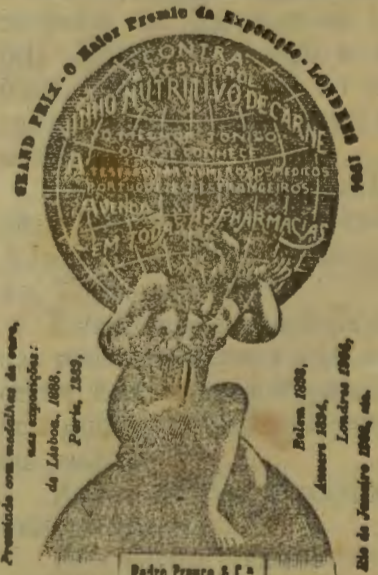 GRAND PRIX - O Maior Premio da Exposição - LONDRES 1904
CONTRA
A DEBILIDADE
VINHO NUTRITIVO DE CARNE
O MELHOR TONICO
QUE SE CONHECE
ATTESTADO POR NUMEROSOS MEDICOS
PORTUGUEZES E ESTRANGEIROS
A VENDA AS PHARMACIAS
EM TODAS
Premiado com medalhas de ouro,
nas exposições:
de Lisboa, 1888,
Paris, 1889,
Belem 1893,
Anvers 1894,
Londres 1904,
Rio de Janeiro 1908, etc.
Pedro Franco & C.ª